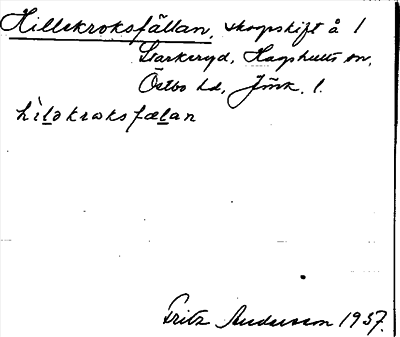 Hillekroksfällan, skogsskift å 1
Starkeryd, Hagshults sn,
Östbo hd, Jönk. l.
hìləkrωksfæļan
Fritz Andersson 1937.